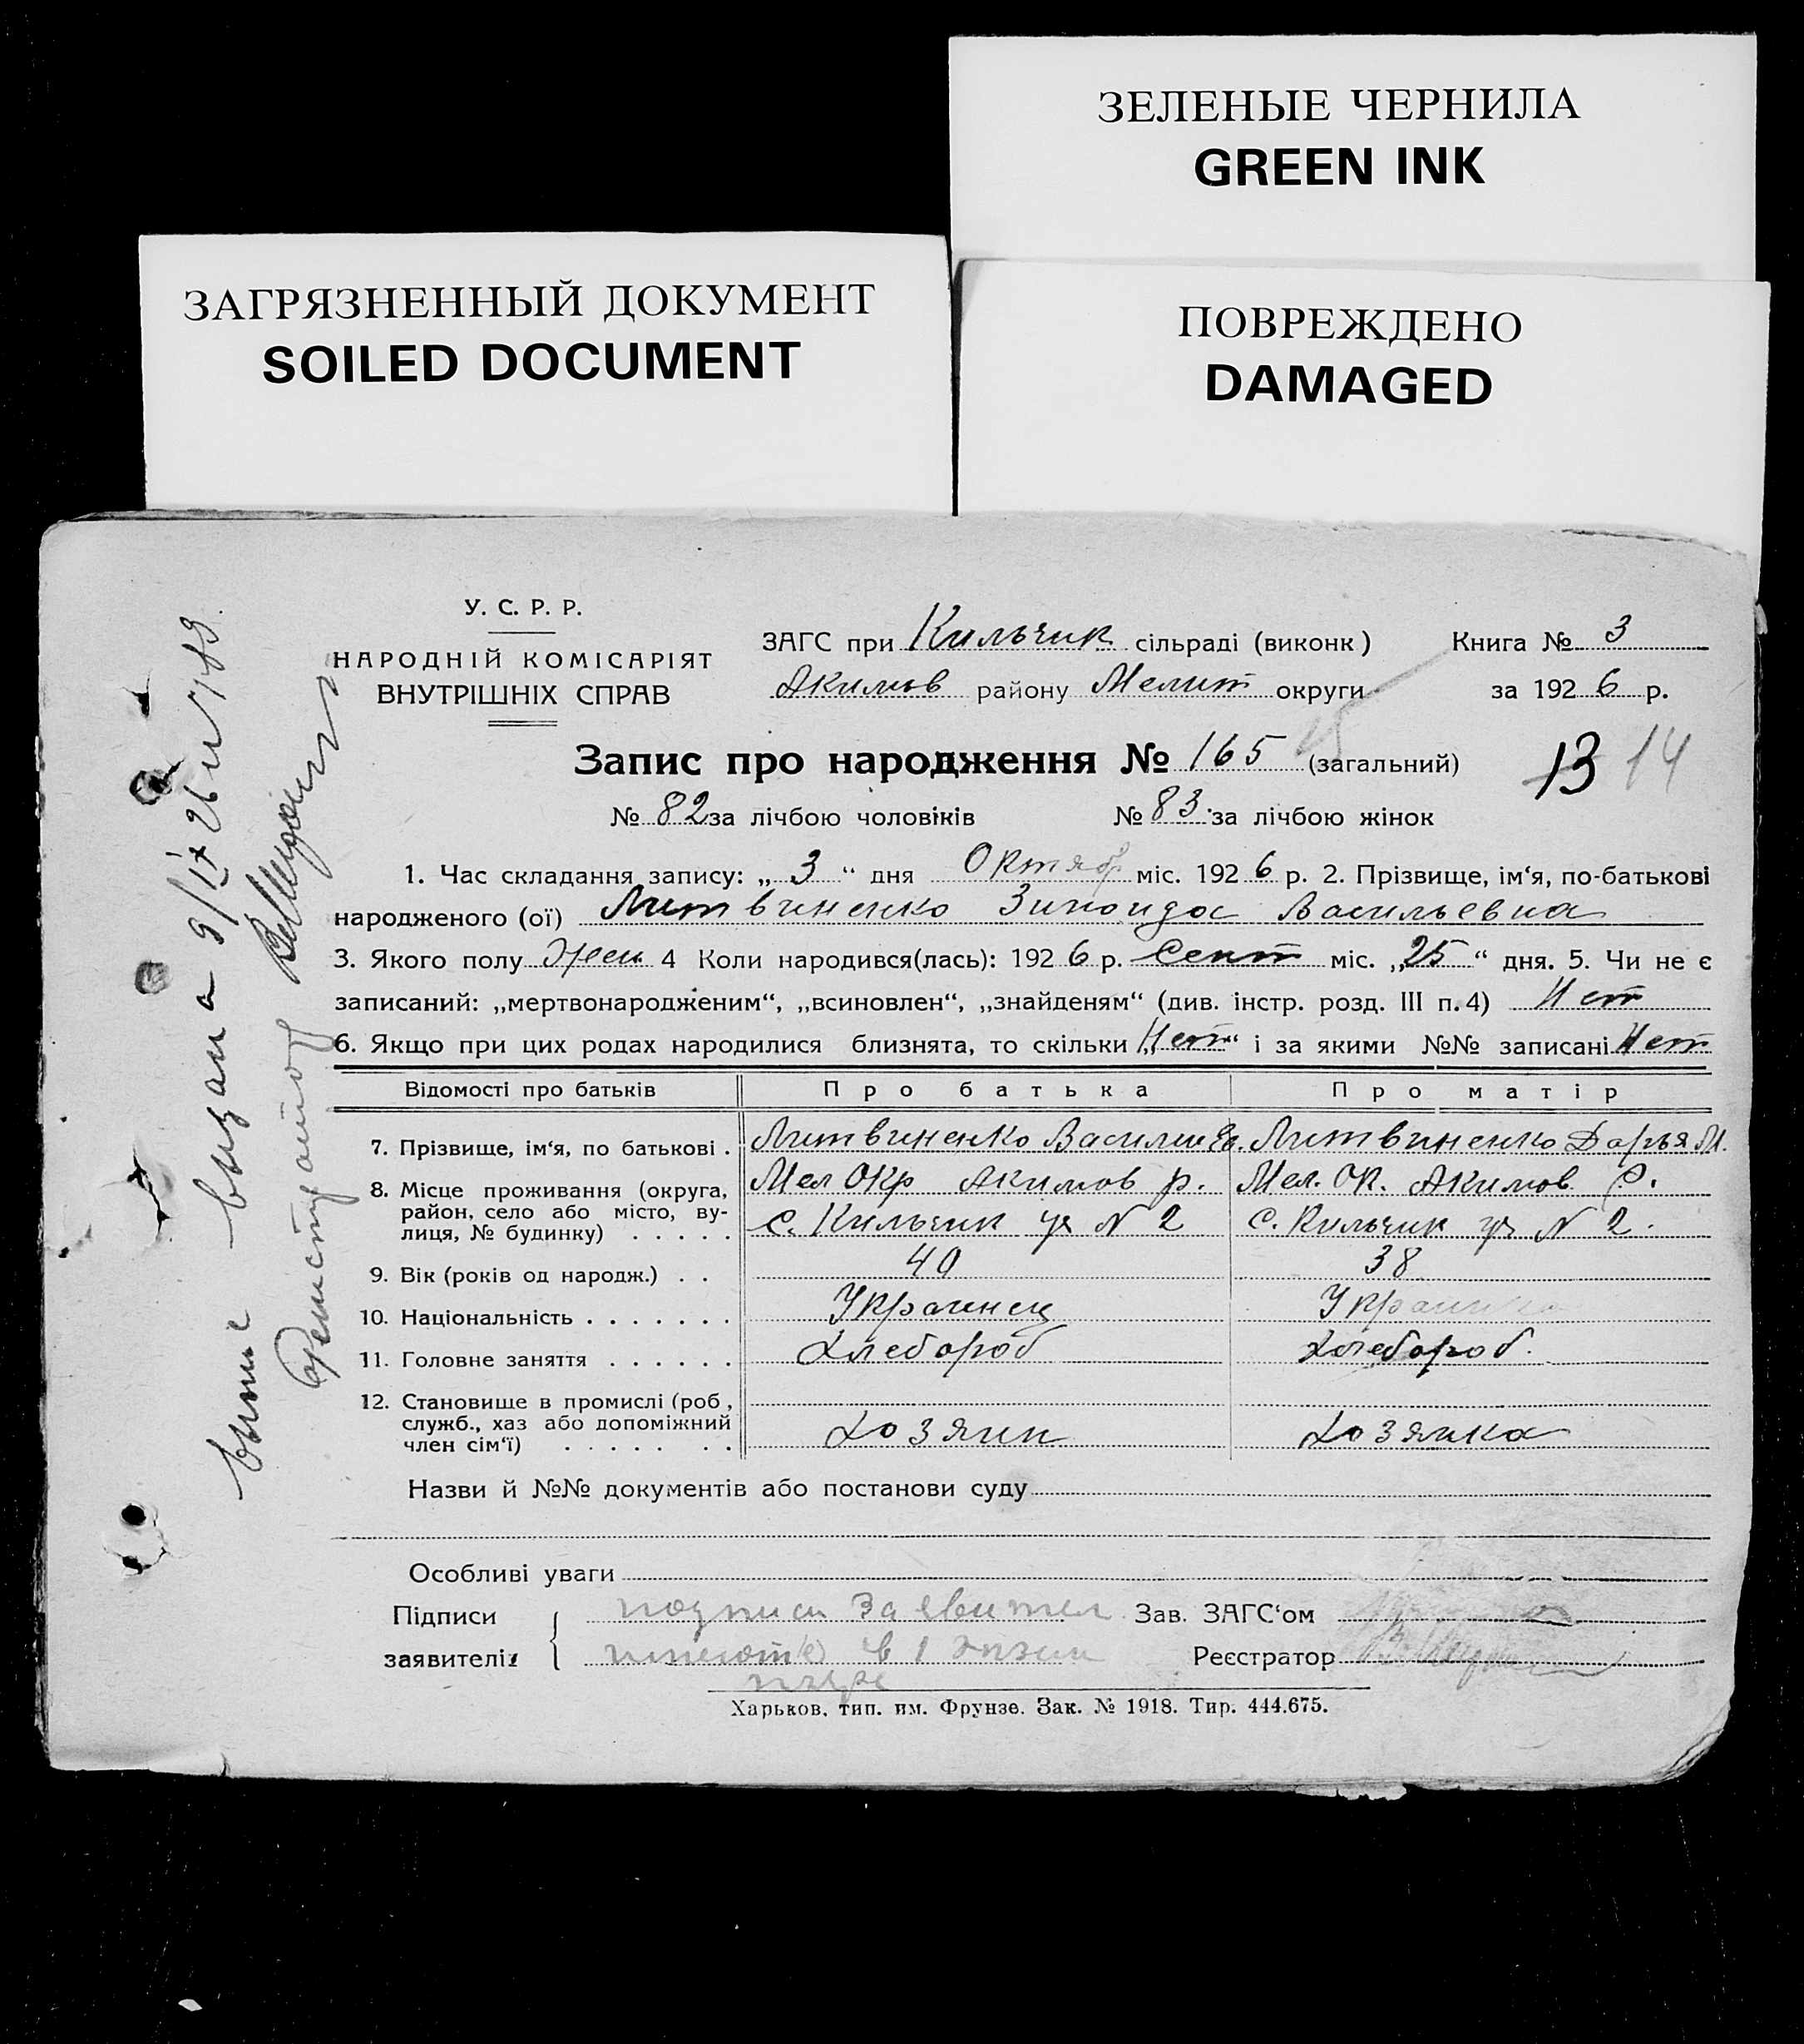 ЗЕЛЕНЫЕ ЧЕРНИЛА
GREEN INK
ЗАГРЯЗНЕННЫЙ ДОКУМЕНТ
SOILED DOCUMENT
ПОВРЕЖДЕНО
DAMAGED
У. С. Р. Р.
НАРОДНІЙ КОМІСАРІЯТ
ВНУТРІШНІХ СПРАВ
ЗАГС при Кильчик сільраді (виконк)
Акимов району Мелит округи
Книга № 3
за 1926 р.
Запис про народження № 165 (загальний)
13 14
№ 82 за лічбою чоловіків № 83 за лічбою жінок
1. Час складання запису: „3“ дня Октябр міс. 1926 р. 2. Прізвище, ім‘я, по-батькові
народженого (ої) Литвиненко Зиноида Васильевна
3. Якого полу Жен 4 Коли народився(лась): 1926 р. Сент міс. „25“ дня. 5. Чи не є
записаний: „мертвонародженим“, „всиновлен“, „знайденям“ (див. інстр. розд. III п. 4) Нет
6. Якщо при цих родах народилися близнята, то скільки „Нет“ і за якими №№ записані Нет
Відомості про батьків Про батька Про матір
7. Прізвище, ім‘я, по батькові . Литвиненко Василий Ев. Литвиненко Дарья М.
8. Місце проживання (округа, Мел Окр Акимов р. Мел. Ок. Акимов Р.
район, село або місто, ву-
лиця, № будинку) . . . . . с. Кильчик уч N 2 с. Кильчик уч N 2.
9. Вік (років од народж.) . . 40 38
10. Національність . . . . . . . Украинец Украинка
11. Головне заняття . . . . . . Хлебороб Хлебороб.
12. Становище в промислі (роб,
служб., хаз або допоміжний
член сім‘ї) . . . . . . . Хозяин Хозяйка
Назви й №№ документів або постанови суду
Особливі уваги
Підписи
заявителів
подписи заявител
имеютс в 1 экзем
пляре
Зав. ЗАГС‘ом
Реєстратор
Харьков, тип. им. Фрунзе. Зак. № 1918. Тир. 444.675.
выпис выдана 9/IX 26
Регистратор